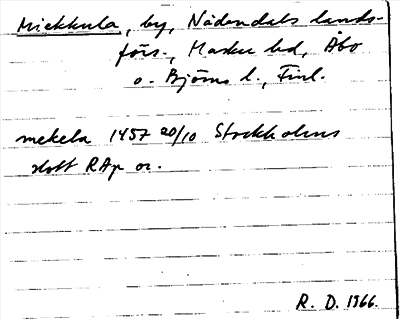 Miekkula, by, Nådendals lands-
förs., Masku hd, Åbo
o. Björneb. l., Finl.
mekela 1457 20/10 Stockholms
slott RAp or.
R. D. 1966.